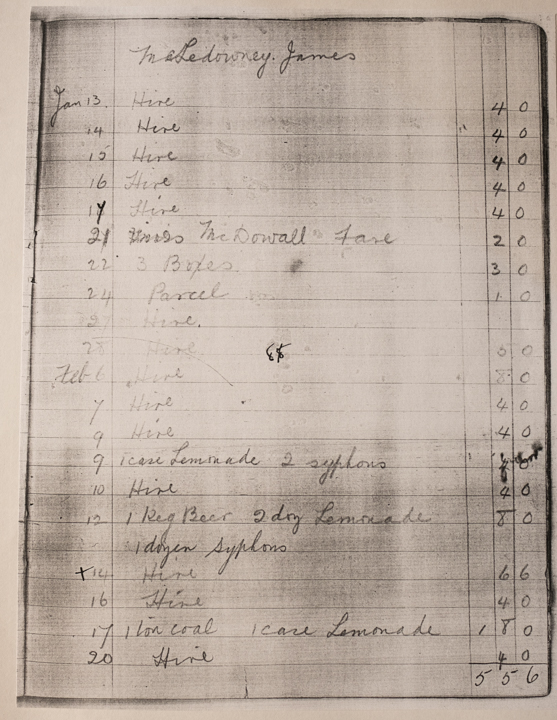 James
Jan 13. Hire 4 0
14 Hire 4 0
15 Hire 4 0
16 Hire 4 0
17 Hire 4 0
21 McDowall Fare 2 0
22 3 Boxes. 3 0
24 Parcel 1 0
27 Hire.
28 Hire 0
Feb 6 Hire 8 0
7 Hire 4 0
9 Hire 4 0
9 1 case Lemonade 2 syphons
10 Hire 4 0
12 1 Keg Beer 2 doz Lemonade 8 0
1 dozen Syphons
+14 Hire 6 6
16 Hire 4 0
17 1 ton coal 1 case Lemonade 1 8 0
20 Hire 4 0
5 5 6